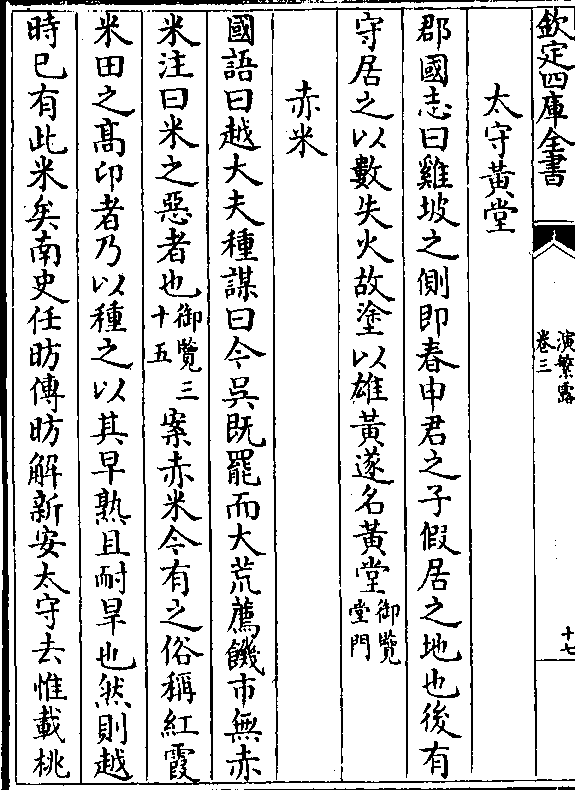 欽定四庫全書
演繁露
卷三
十七
太守黃堂
郡國志曰雞坡之側即春申君之子假居之地也後有
守居之以數失火故塗以雄黃遂名黃堂御覽堂門
赤米
國語曰越大夫種謀曰今吳既罷而大荒薦饑市無赤
米注曰米之惡者也御覽三十五案赤米今有之俗稱紅霞
米田之髙卬者乃以種之以其早熟且耐旱也然則越
時已有此米矣南史任昉傳昉解新安太守去惟載桃